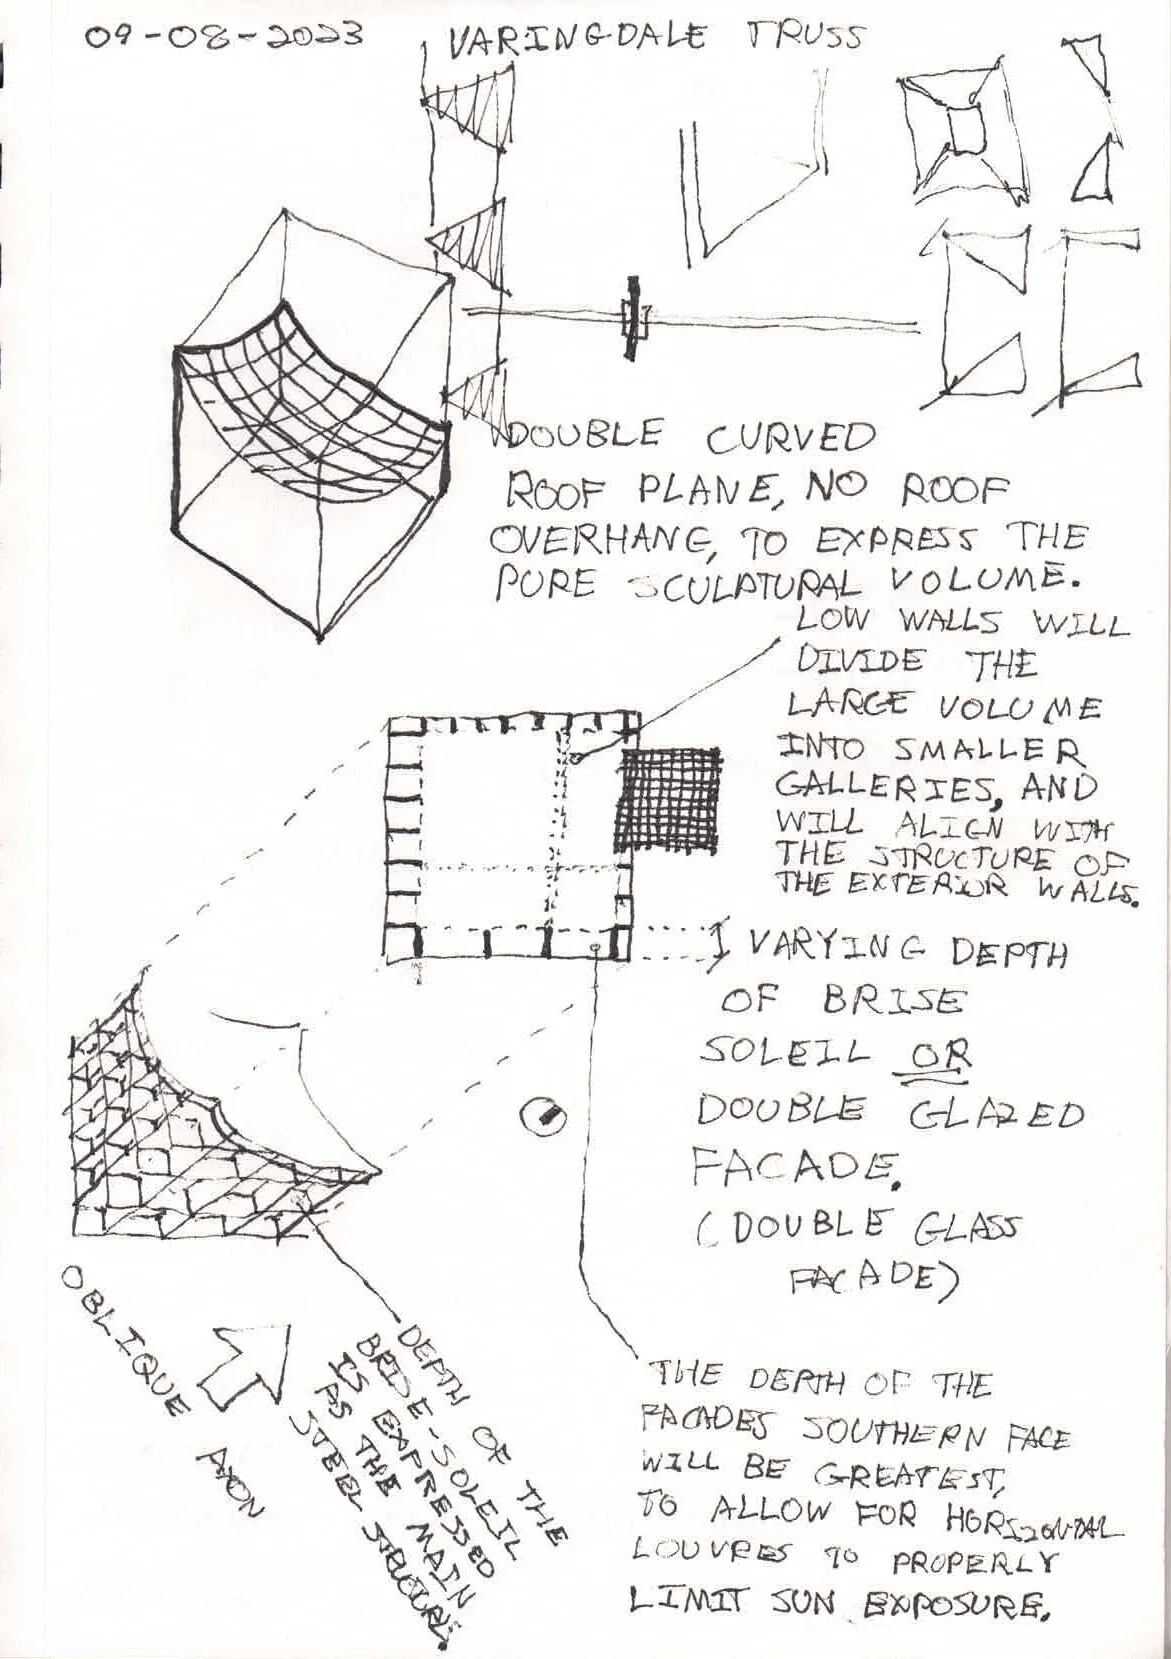 09-08-2023
VARINGDALE TRUSS
DOUBLE CURVED
ROOF PLANE, NO ROOF
OVERHANG, TO EXPRESS THE
PURE SCULPTURAL VOLUME.
LOW WALLS WILL
DIVIDE THE
LARGE VOLUME
INTO SMALLER
GALLERIES, AND
WILL ALIGN WITH
THE STRUCTURE OF
THE EXTERIOR WALLS.
VARYING DEPTH
OF BRISE
SOLEIL OR
DOUBLE GLAZED
FACADE.
(DOUBLE GLASS
FACADE)
OBLIQUE AXON
DEPTH OF THE
BRISE-SOLEIL
IS EXPRESSED
AS THE MAIN
STEEL STRUCTURE.
THE DEPTH OF THE
FACADES SOUTHERN FACE
WILL BE GREATEST,
TO ALLOW FOR HORIZONTAL
LOUVRES TO PROPERLY
LIMIT SUN EXPOSURE.